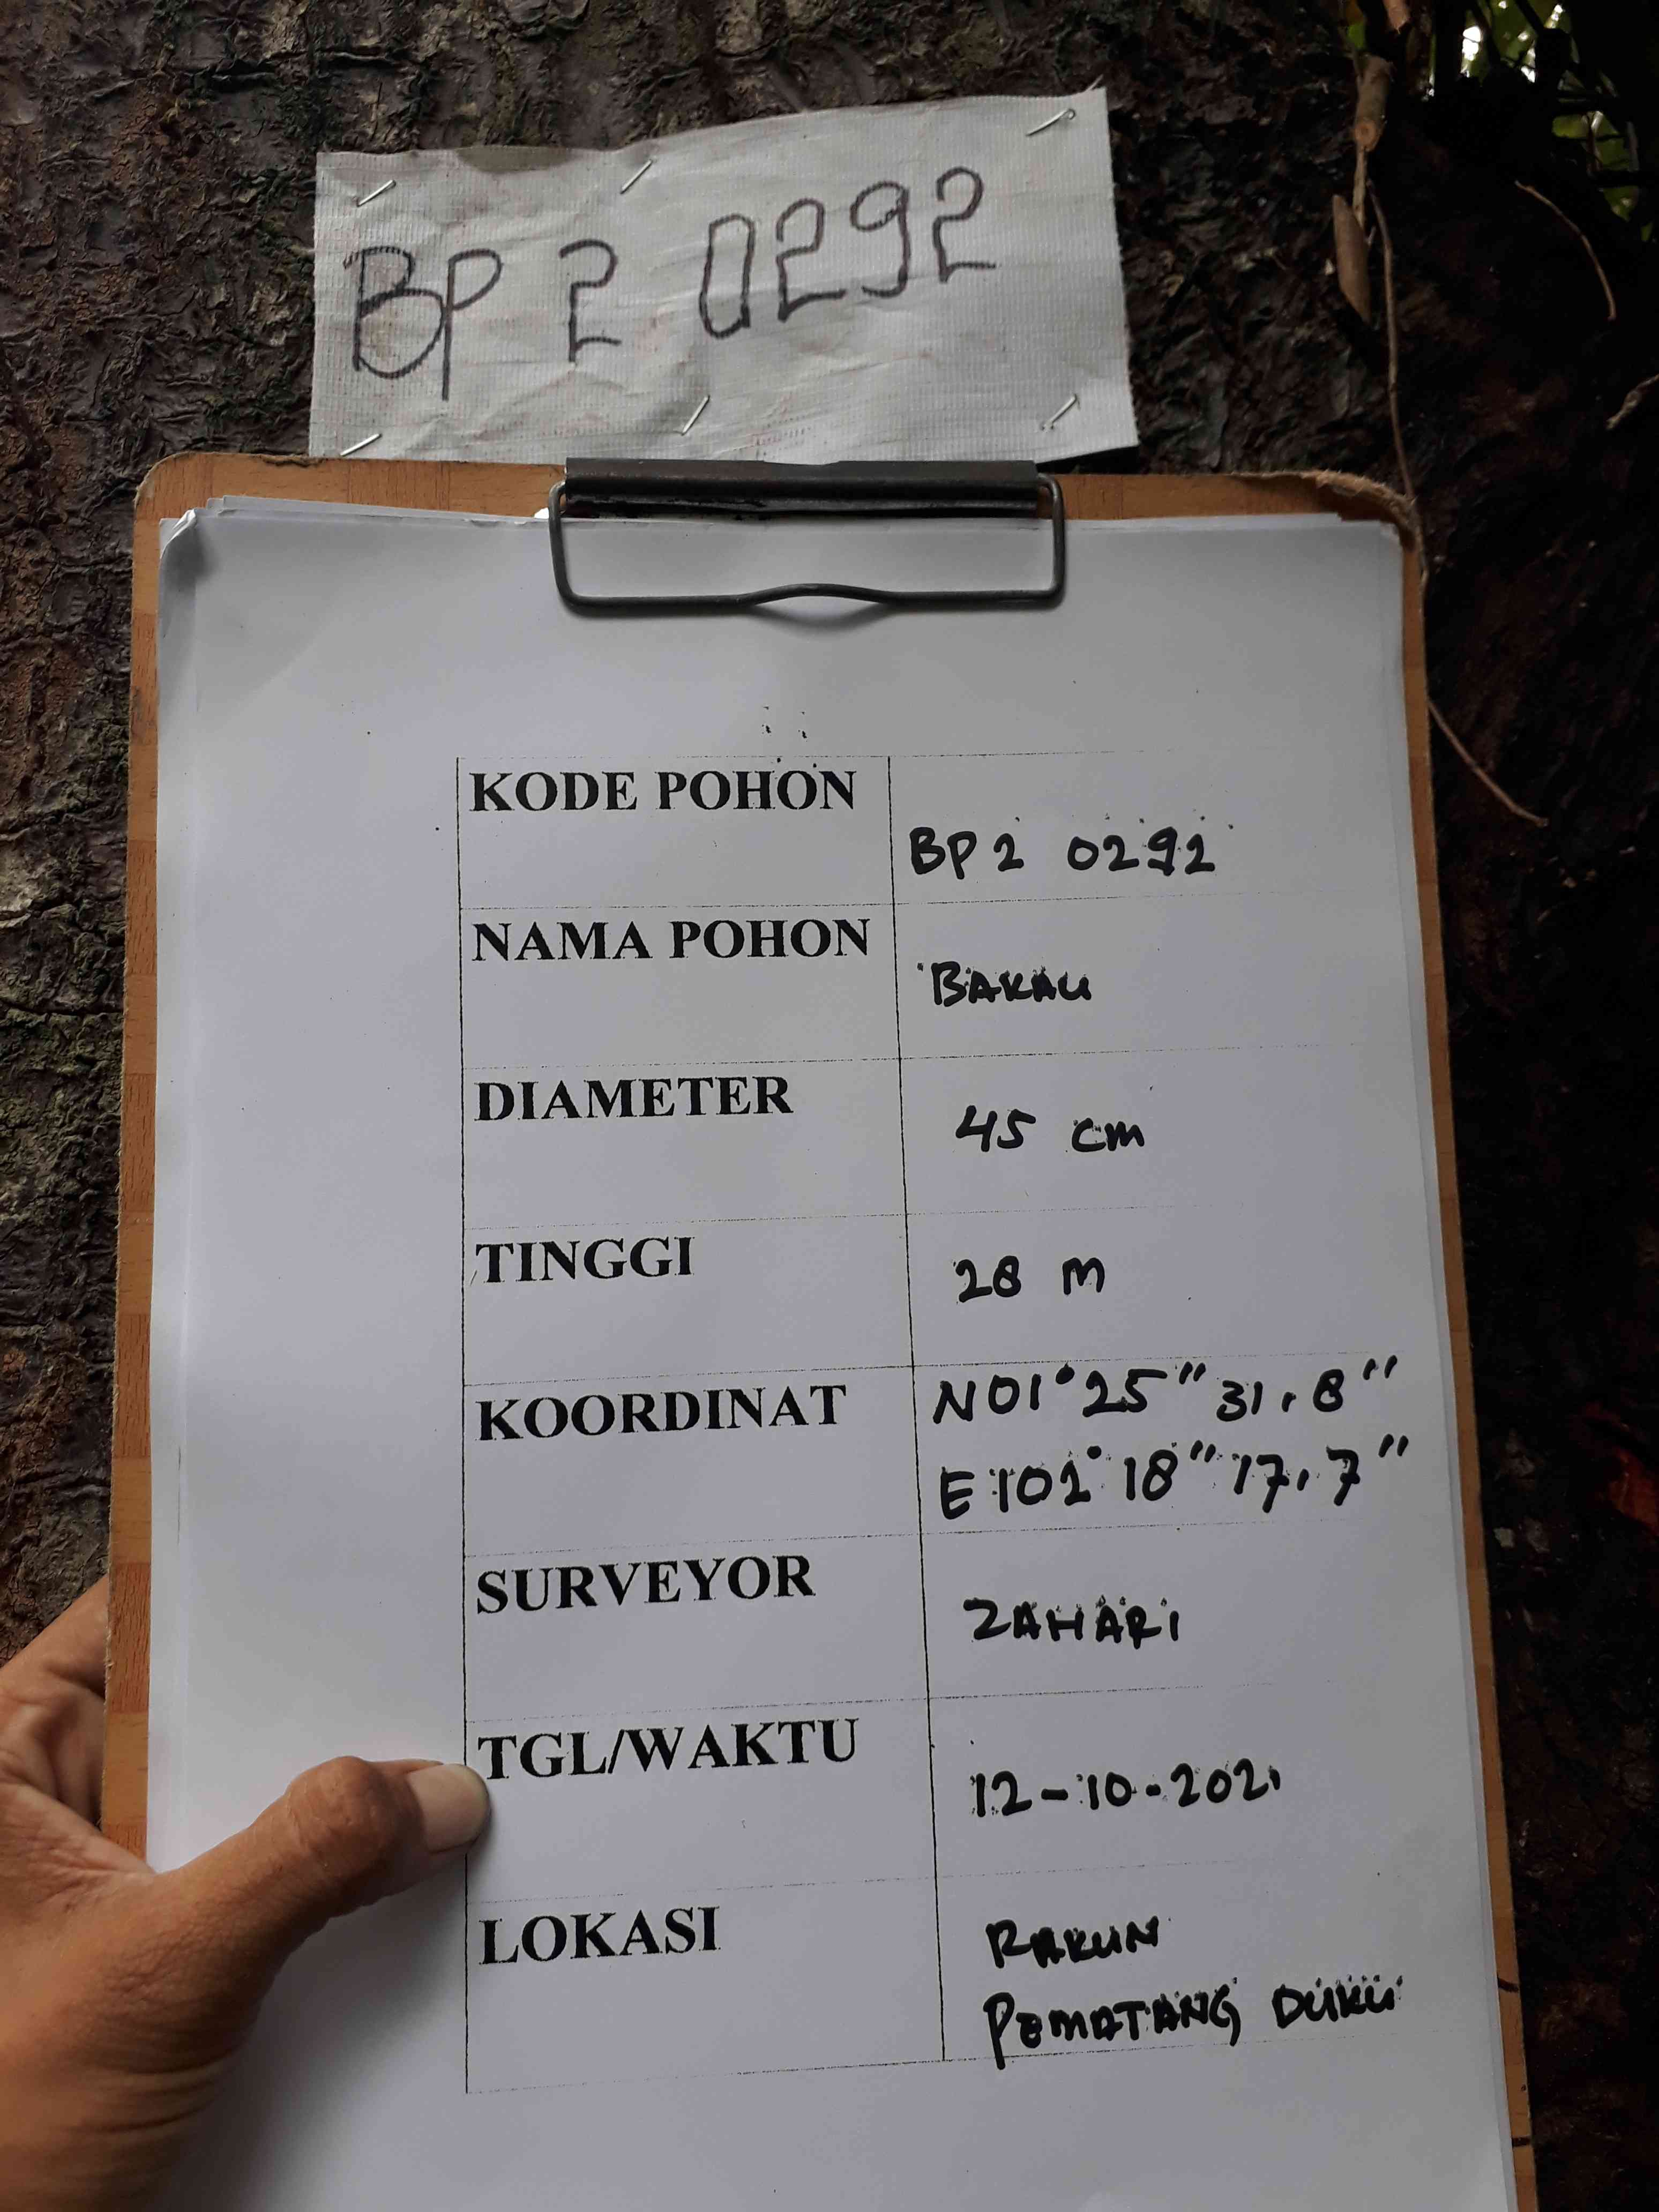 BP 2 0292
KODE POHON
BP 2 0292
NAMA POHON
BAKAU
DIAMETER
45 cm
TINGGI
28 m
KOORDINAT
N01°25"31,8"
E102°18"17,7"
SURVEYOR
ZAHARI
TGL/WAKTU
12-10-2021
LOKASI
RAKUN
PEMATANG DUKU